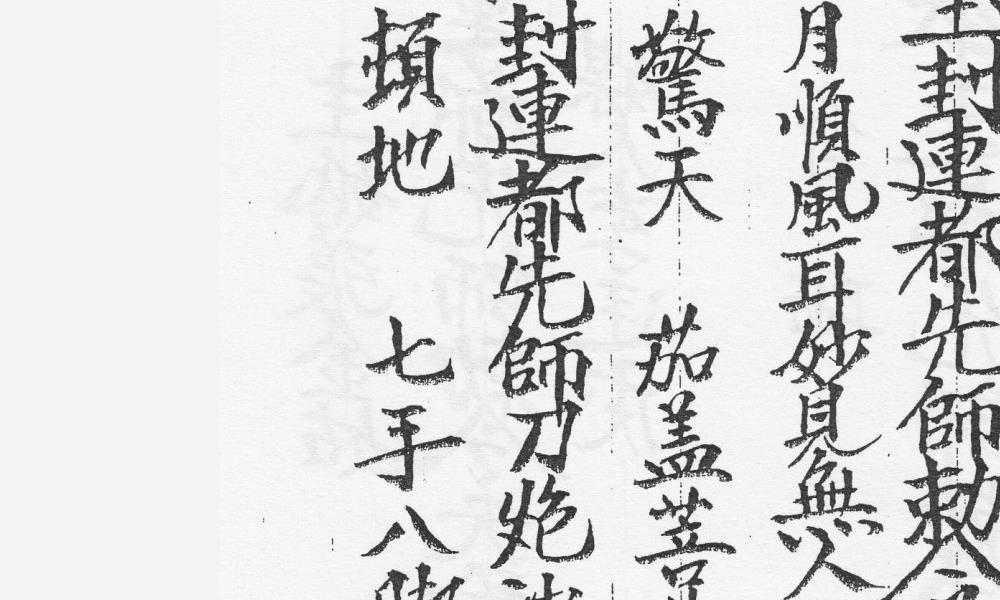 封連都先師勅
月順風耳妙見無人
驚天 茄盖荳
封連都先師刀炮
頓地 七手八脚